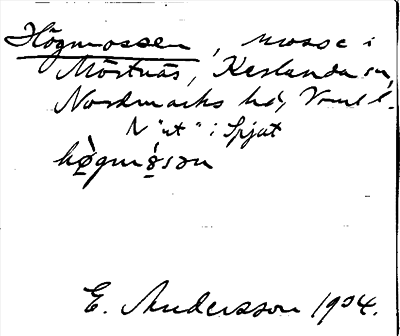 Högmossen, mosse i
Mörtnäs, Karlanda sn,
Nordmarks hd, Vrml l.
N "ut" i Spjut
hø̀gmɷ̀sən
E. Andersson 1904.